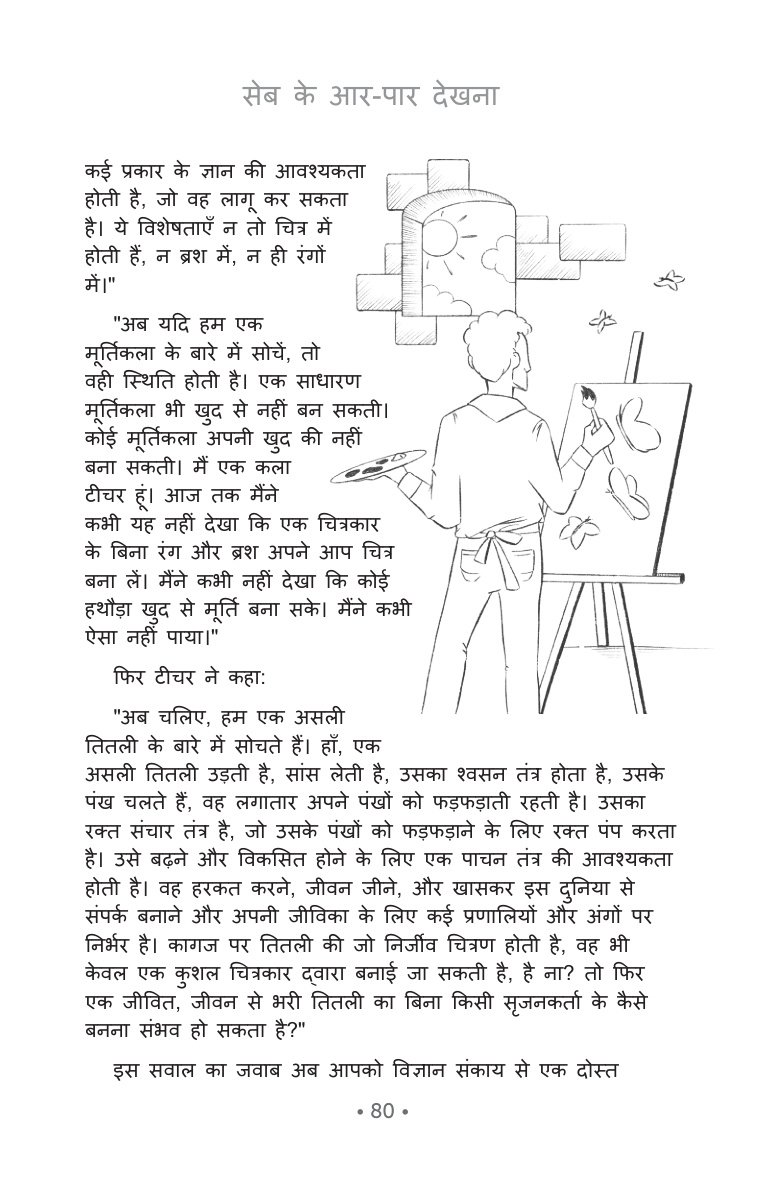 सेब के आर-पार देखना
कई प्रकार के ज्ञान की आवश्यकता
होती है, जो वह लागू कर सकता
है। ये विशेषताएँ न तो चित्र में
होती हैं, न ब्रश में, न ही रंगों
में।"
"अब यदि हम एक
मूर्तिकला के बारे में सोचें, तो
वही स्थिति होती है। एक साधारण
मूर्तिकला भी खुद से नहीं बन सकती।
कोई मूर्तिकला अपनी खुद की नहीं
बना सकती। मैं एक कला
टीचर हूं। आज तक मैंने
कभी यह नहीं देखा कि एक चित्रकार
के बिना रंग और ब्रश अपने आप चित्र
बना लें। मैंने कभी नहीं देखा कि कोई
हथौड़ा खुद से मूर्ति बना सके। मैंने कभी
ऐसा नहीं पाया।"
फिर टीचर ने कहा:
"अब चलिए, हम एक असली
तितली के बारे में सोचते हैं। हाँ, एक
असली तितली उड़ती है, सांस लेती है, उसका श्वसन तंत्र होता है, उसके
पंख चलते हैं, वह लगातार अपने पंखों को फड़फड़ाती रहती है। उसका
रक्त संचार तंत्र है, जो उसके पंखों को फड़फड़ाने के लिए रक्त पंप करता
है। उसे बढ़ने और विकसित होने के लिए एक पाचन तंत्र की आवश्यकता
होती है। वह हरकत करने, जीवन जीने, और खासकर इस दुनिया से
संपर्क बनाने और अपनी जीविका के लिए कई प्रणालियों और अंगों पर
निर्भर है। कागज पर तितली की जो निर्जीव चित्रण होती है, वह भी
केवल एक कुशल चित्रकार द्वारा बनाई जा सकती है, है ना? तो फिर
एक जीवित, जीवन से भरी तितली का बिना किसी सृजनकर्ता के कैसे
बनना संभव हो सकता है?"
इस सवाल का जवाब अब आपको विज्ञान संकाय से एक दोस्त
• 80 •